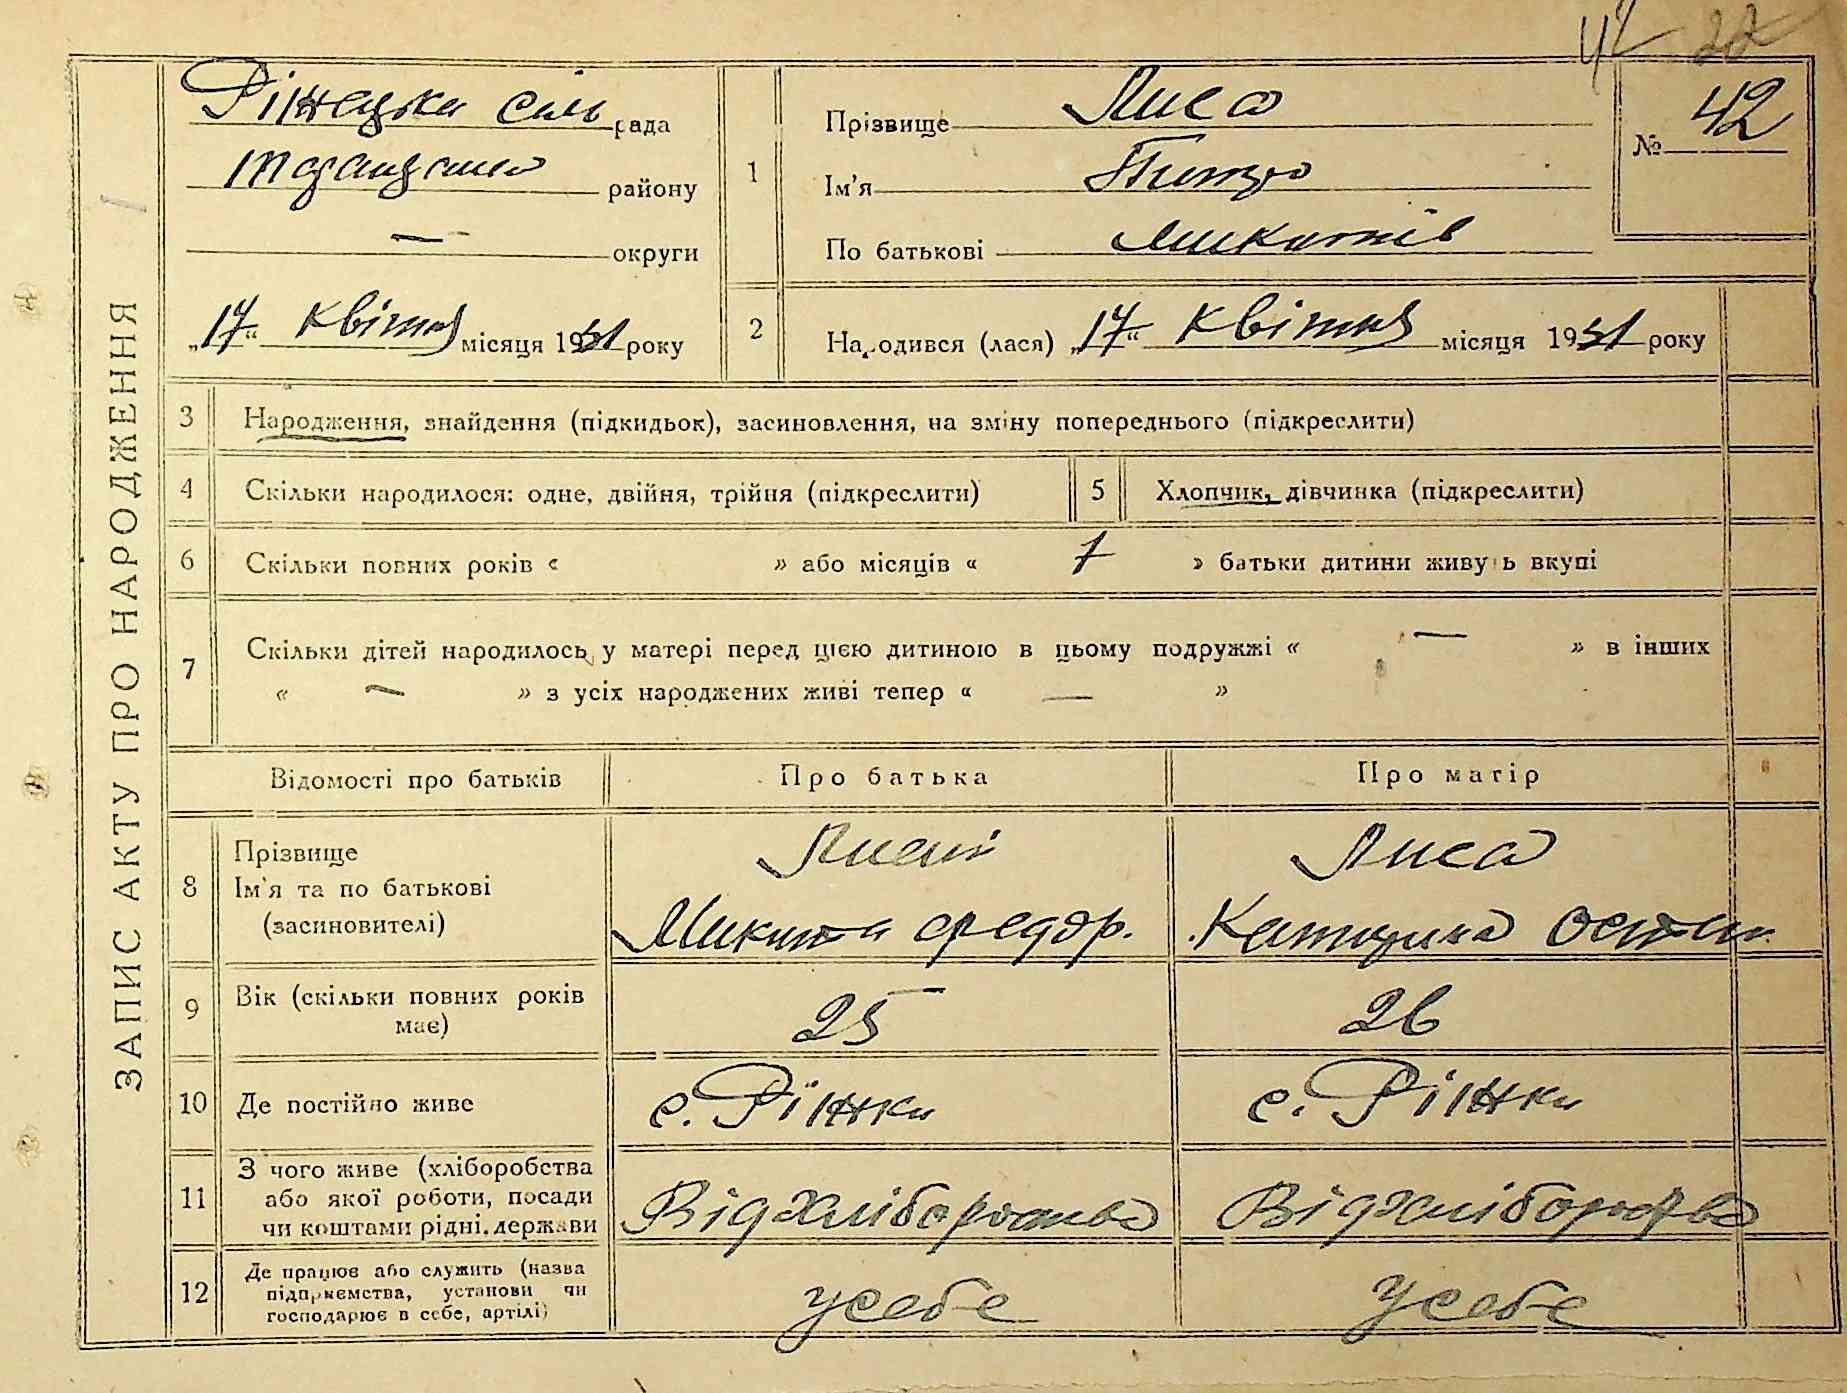 42 22
Ріжецька сіль рада
Таращанс району
— округи
„17“ Квітня місяця 1931 року
1
Прізвище Лиса
Ім'я Петро
По батькові Микитів
№ 42
2
Народився (лася) „17“ Квітня місяця 1931 року
ЗАПИС АКТУ ПРО НАРОДЖЕННЯ
3 Народження, знайдення (підкидьок), засиновлення, на зміну попереднього (підкреслити)
4 Скільки народилося: одне, двійня, трійня (підкреслити) 5 Хлопчик, дівчинка (підкреслити)
6 Скільки повних років « » або місяців « 7 » батьки дитини живуть вкупі
7 Скільки дітей народилось у матері перед цією дитиною в цьому подружжі « — » в інших
« — » з усіх народжених живі тепер « — »
Відомості про батьків Про батька Про матір
8 Прізвище Лисий Лиса
Ім'я та по батькові
(засиновителі) Микита Федор. Катерина Остап.
9 Вік (скільки повних років
має) 25 26
10 Де постійно живе с. Ріжки с. Ріжки
11 З чого живе (хліборобства
або якої роботи, посади
чи коштами рідні, держави Від хліборобства Від хліборобства
12 Де працює або служить (назва
підприємства, установи чи
господарює в себе, артілі) У себе У себе